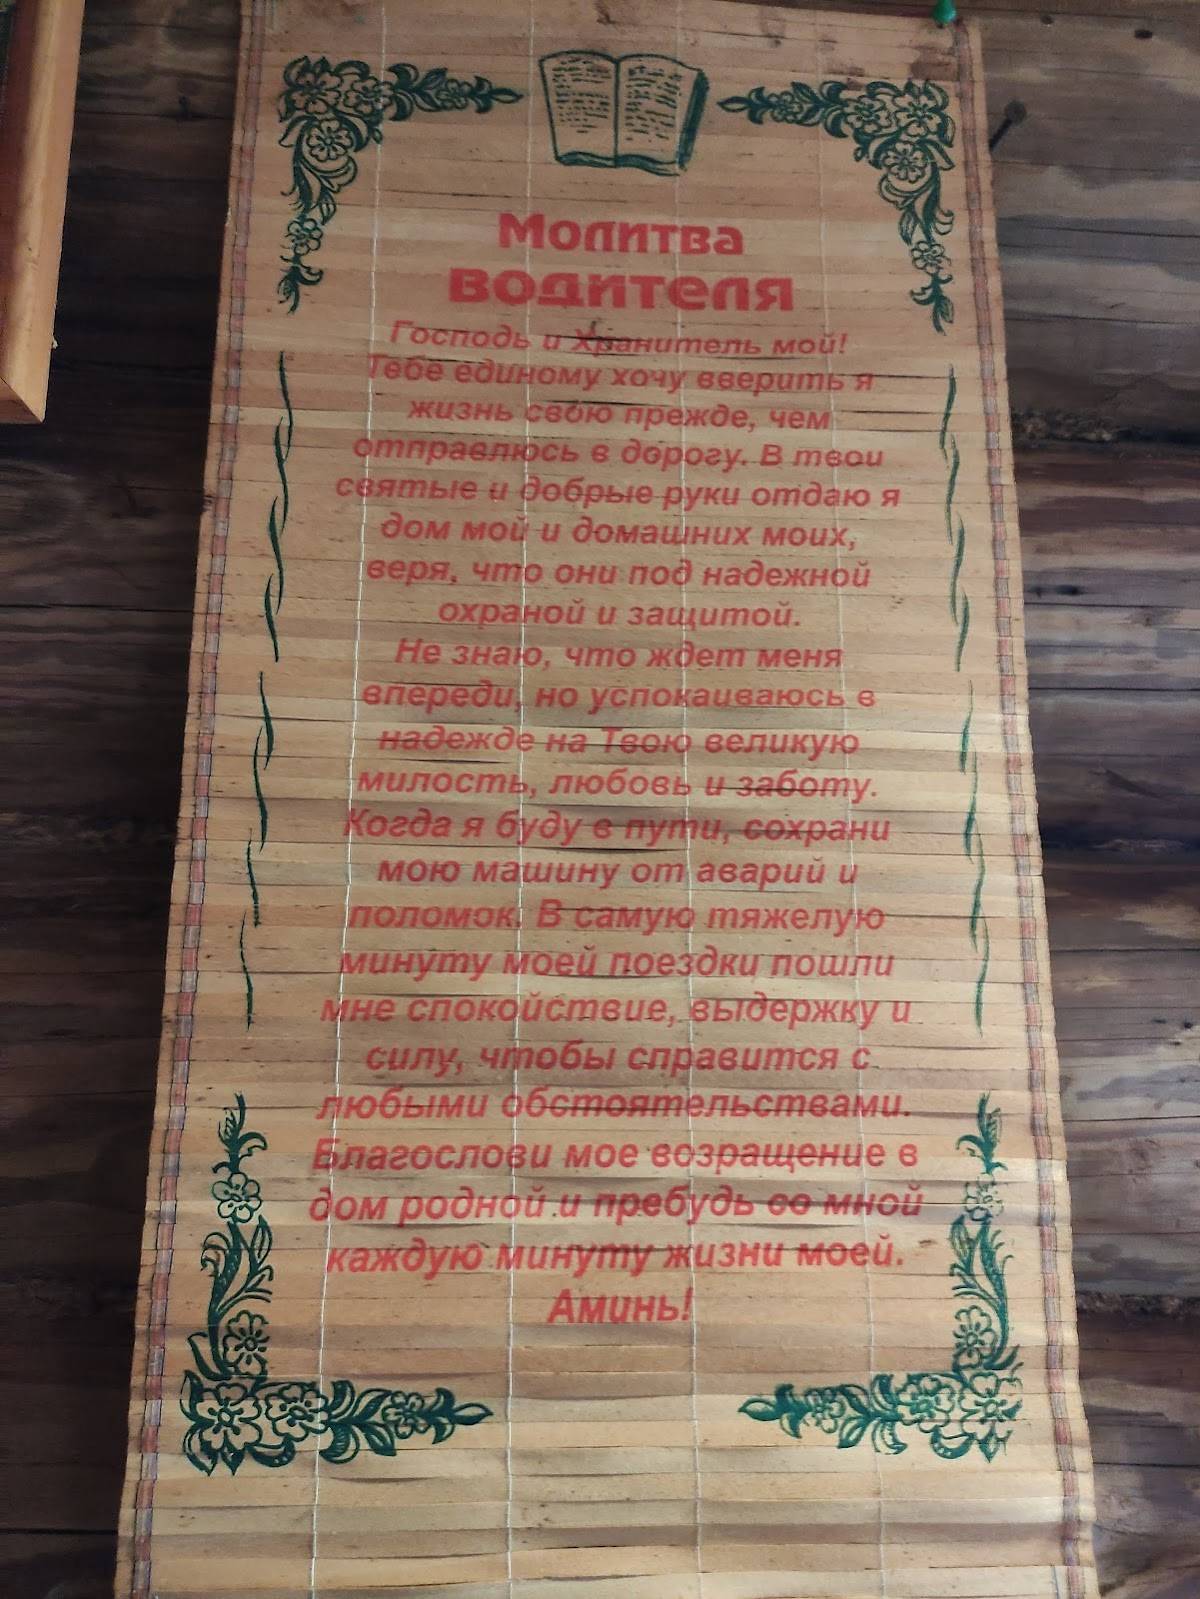 Молитва
водителя
Господь и Хранитель мой!
Тебе единому хочу вверить я
жизнь свою прежде, чем
отправлюсь в дорогу. В твои
святые и добрые руки отдаю я
дом мой и домашних моих,
веря, что они под надежной
охраной и защитой.
Не знаю, что ждет меня
впереди, но успокаиваюсь в
надежде на Твою великую
милость, любовь и заботу.
Когда я буду в пути, сохрани
мою машину от аварий и
поломок. В самую тяжелую
минуту моей поездки пошли
мне спокойствие, выдержку и
силу, чтобы справится с
любыми обстоятельствами.
Благослови мое возращение в
дом родной и пребудь со мной
каждую минуту жизни моей.
Аминь!